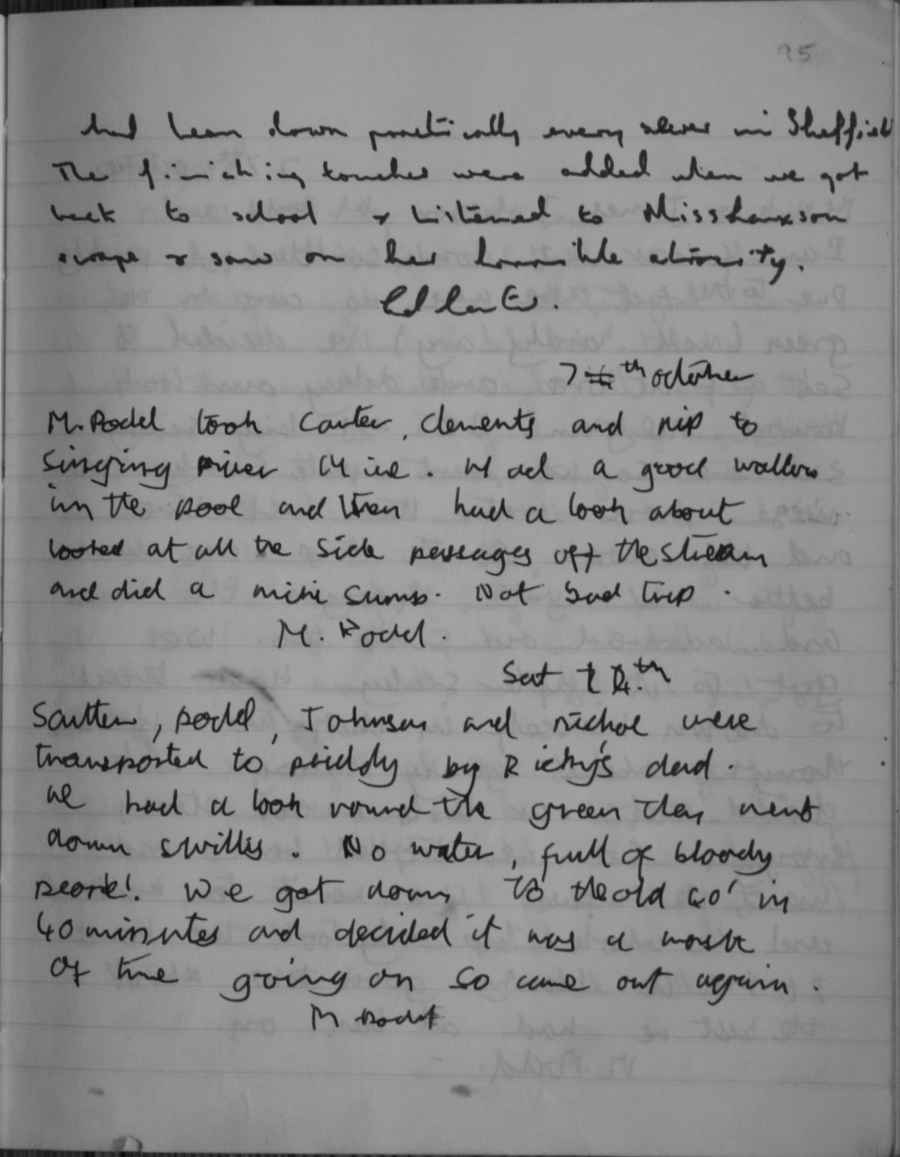 95
had been down practically every sewer in Sheffield
The finishing touches were added when we got
back to school & listened to Miss
scrape & saw on her horrible
7th october
M. Rodd took Carter, Clements and nip to
Singing River Mine. Had a good wallow
in the pool and then had a look about
looked at all the side passages off the stream
and did a mini sump. Not bad trip.
M. Rodd.
Sat 14th
Rodd, Johnson and nichol were
transported to priddy by Ricky's dad.
we had a look round the green then went
down swillies. No water, full of bloody
people! We got down to the old 40' in
40 minutes and decided it was a waste
of time going on so came out again.
M Rodd